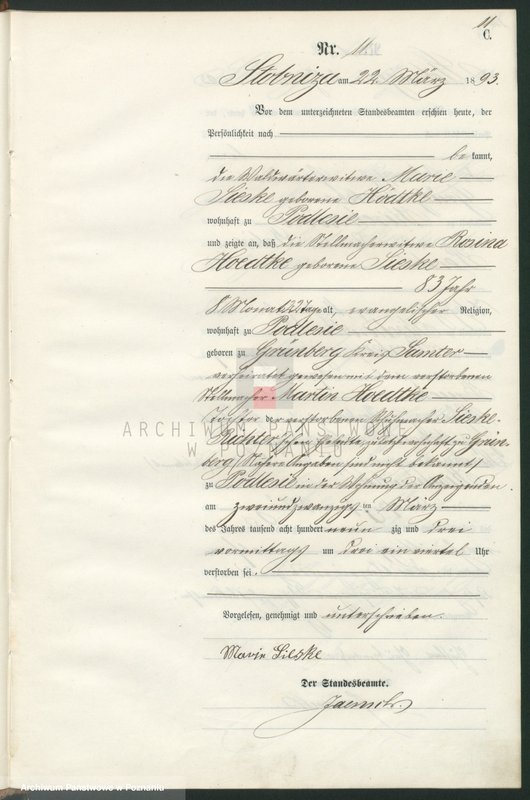 11
C.
Nr. 11
Stobnica am 22 März 1893.
Vor dem unterzeichneten Standesbeamten erschien heute, der
Persönlichkeit nach
bekannt,
die Waldwärterwitwe Marie
Sieske geborene Hödtke
wohnhaft zu Podlesie
und zeigte an, daß die Stellmacherwitwe Rosina
Hoedtke geborene Sieske
83 Jahr
8 Monat 22 Tage alt, evangelischer Religion,
wohnhaft zu Podlesie
geboren zu Grünberg Kreis Samter
verheiratet gewesen mit dem verstorbenen
Stellmacher Martin Hoedtke
Tochter der verstorbenen Sieske
Richter'schen Eheleute zu Grün-
berg (Nähere Angaben sind nicht bekannt)
zu Podlesie in der Wohnung der Anzeigenden
am zweiundzwanzigsten März
des Jahres tausend acht hundert neunzig und drei
vormittags um drei ein viertel Uhr
verstorben sei.
Vorgelesen, genehmigt und unterschrieben.
Marie Sieske
Der Standesbeamte.
ARCHIWUM PAŃSTWOWE
W POZNANIU
Archiwum Państwowe w Poznaniu